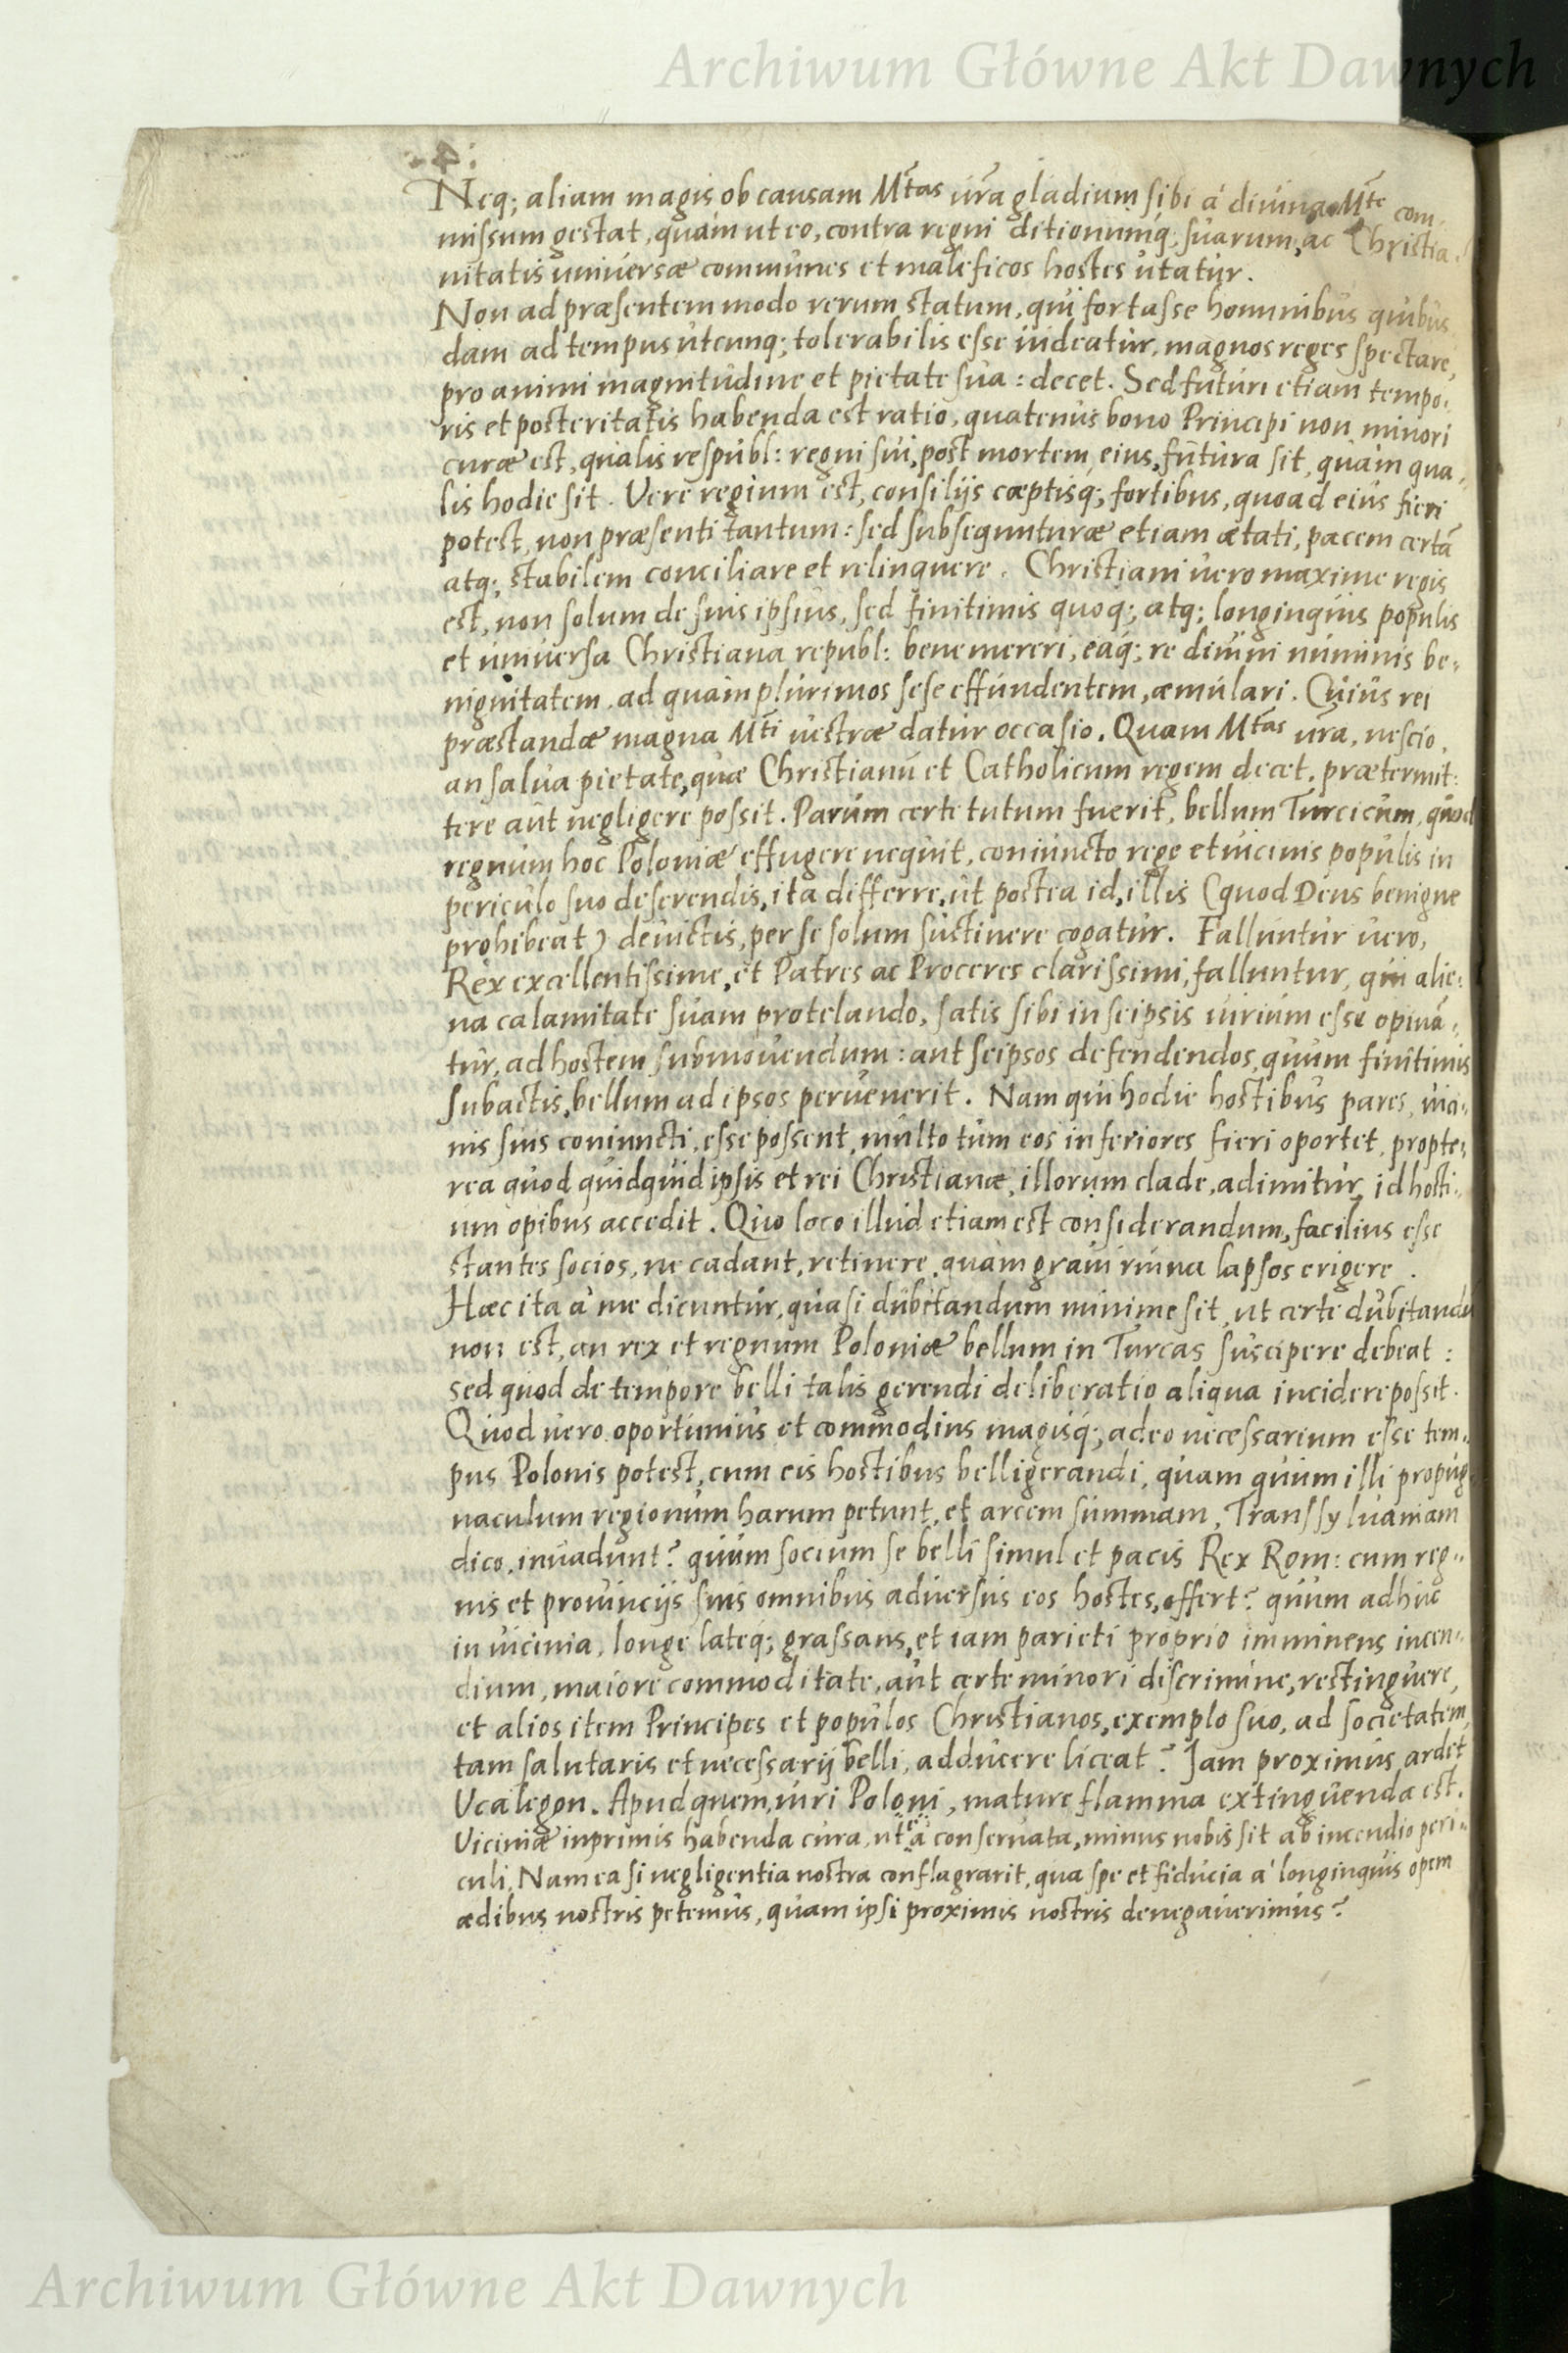 Archiwum Główne Akt Dawnych
Neq; aliam magis ob causam Mtas ura gladium sibi à diuina Mte com-
missum gestat, quàm ut eo, contra regni ditionumq; suarum, ac Christia-
nitatis uniuersæ communes et maleficos hostes utatur.
Non ad præsentem modo rerum statum, qui fortasse hominibus quibus
dam ad tempus utcunq; tolerabilis esse uideatur, magnos reges spectare,
pro animi magnitudine et pietate sua: decet. Sed futuri etiam tempo-
ris et posteritatis habenda est ratio, quatenus bono Principi non minori
curæ est, qualis respubl: regni sui, post mortem eius, futura sit, quàm qua-
lis hodie sit. Vere regium est, consilijs cœptisq; fortibus, quoad eius fieri
potest, non præsenti tantum: sed subsequuturæ etiam ætati, pacem certã
atq; stabilem conciliare et relinquere. Christiani uero maxime regis
est, non solum de suis ipsius, sed finitimis quoq; atq; longinquis populis
et uniuersa Christiana republ: benemereri, eaq; re diuini numinis be-
nignitatem, ad quàm plurimos sese effundentem, æmulari. Cuius rei
præstandæ magna Mti uestræ datur occasio. Quam Mtas ura, nescio,
an salua pietate, quæ Christianũ et Catholicum regem decet, prætermit:
tere aut negligere possit. Parum certe tutum fuerit, bellum Turcicum, quod
regnum hoc Poloniæ effugere nequit, coniuncto rege et uicinis populis in
periculo suo deserendis, ita differre, ut postea id, illis (quod Deus benigne
prohibeat) deuictis, per se solum sustinere cogatur. Falluntur uero,
Rex excellentissime, et Patres ac Proceres clarissimi, falluntur, qui alie-
na calamitate suam protelando, satis sibi in seipsis uirium esse opinã-
tur, ad hostem submouendum: aut seipsos defendendos, quum finitimis
subactis, bellum ad ipsos peruenerit. Nam qui hodie hostibus pares, uici-
nis suis coniuncti, esse possent, multo tum eos inferiores fieri oportet, propte-
rea quod quidquid ipsis et rei Christianæ, illorum clade, adimitur, id hosti-
um opibus accedit. Quo loco illud etiam est considerandum, facilius esse
stantes socios, ne cadant, retinere, quàm graui ruina lapsos erigere.
Hæc ita à me dicuntur, quasi dubitandum minime sit, ut certe dubitandũ
non est, an rex et regnum Poloniæ bellum in Turcas suscipere debeat:
sed quod de tempore belli talis gerendi deliberatio aliqua incidere possit.
Quod uero oportunius et commodius magisq; adeo necessarium esse tem-
pus Polonis potest, cum eis hostibus belligerandi, quam quum illi propug-
naculum regionum harum petunt, et arcem summam, Transsyluaniam
dico, inuadunt? quum socium se belli simul et pacis Rex Rom: cum reg-
nis et prouincijs suis omnibus aduersus eos hostes, offert? quum adhuc
in uicinia, longe lateq; grassans, et iam parieti proprio imminens incen-
dium, maiore commoditate, aut certe minori discrimine, restinguere,
et alios item Principes et populos Christianos, exemplo suo, ad societatem
tam salutaris et necessarij belli, adducere liceat? Iam proximus ardet
Vcalegon. Apud quem, uiri Poloni, mature flamma extinguenda est.
Viciniæ inprimis habenda cura, ut ea conseruata, minus nobis sit ab incendio peri-
culi. Nam ea si negligentia nostra conflagrarit, qua spe et fiducia à longinquis opem
ædibus nostris petemus, quam ipsi proximis nostris denegauerimus?
Archiwum Główne Akt Dawnych